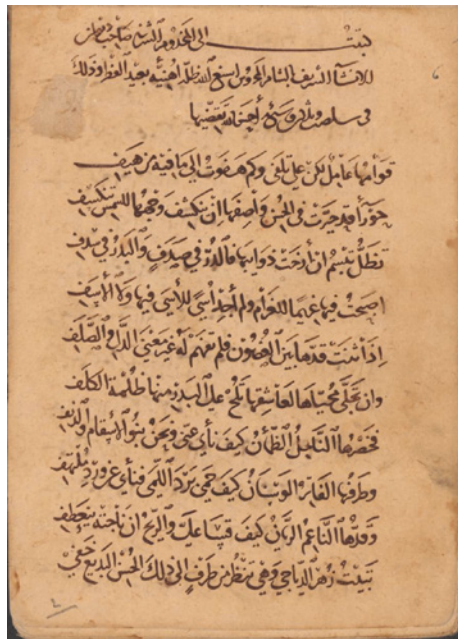 كتبت الى المخدوم الشريف صاحب ديوان
الانشآ الشريف بالشام المحروس اسبغ الله ظله اهنيه بعيد الفطر وذلك
في سلخ
قوامها عامل لكن على تلفي وكم هفوت الى ما فيه من هيف
حورآ قد حيرت في الحسن واصفها ان تنكشف وجهها للشمس تنكسف
تظل تبسم ان أرخت ذوايبها فالدر في صدف والبدر في سدف
اصبحت فيها غريما للغرام ولم أجد أسى للأسى فيها ولا الأسف
اذا ثنت قدها بين الغصون فلم تفهم له غير معنى الدال والصلف
وان تجلى محياها لعاشقها تلح على البدر منها ظلمة الكلف
فخصرها الناحل الظمآن كيف نأى عني ونحن بنو الاسقام والدنف
وطرفها الفاتر الوسنان كيف حمى برد اللمى فنأى عن ورد ملتهف
وقدها الناعم الريان كيف قسا على والريح ان ناجته ينعطف
تبيت زهر الدياجي وهي تنظر من طرف الى ذلك الحسن البديع خفي